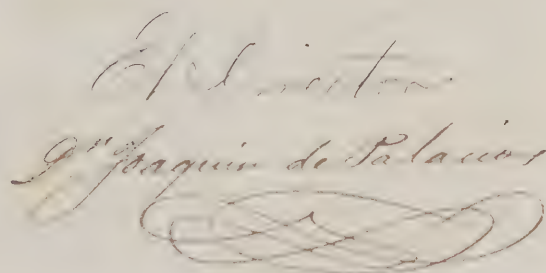 El Director
Dn Joaquin de Palacios